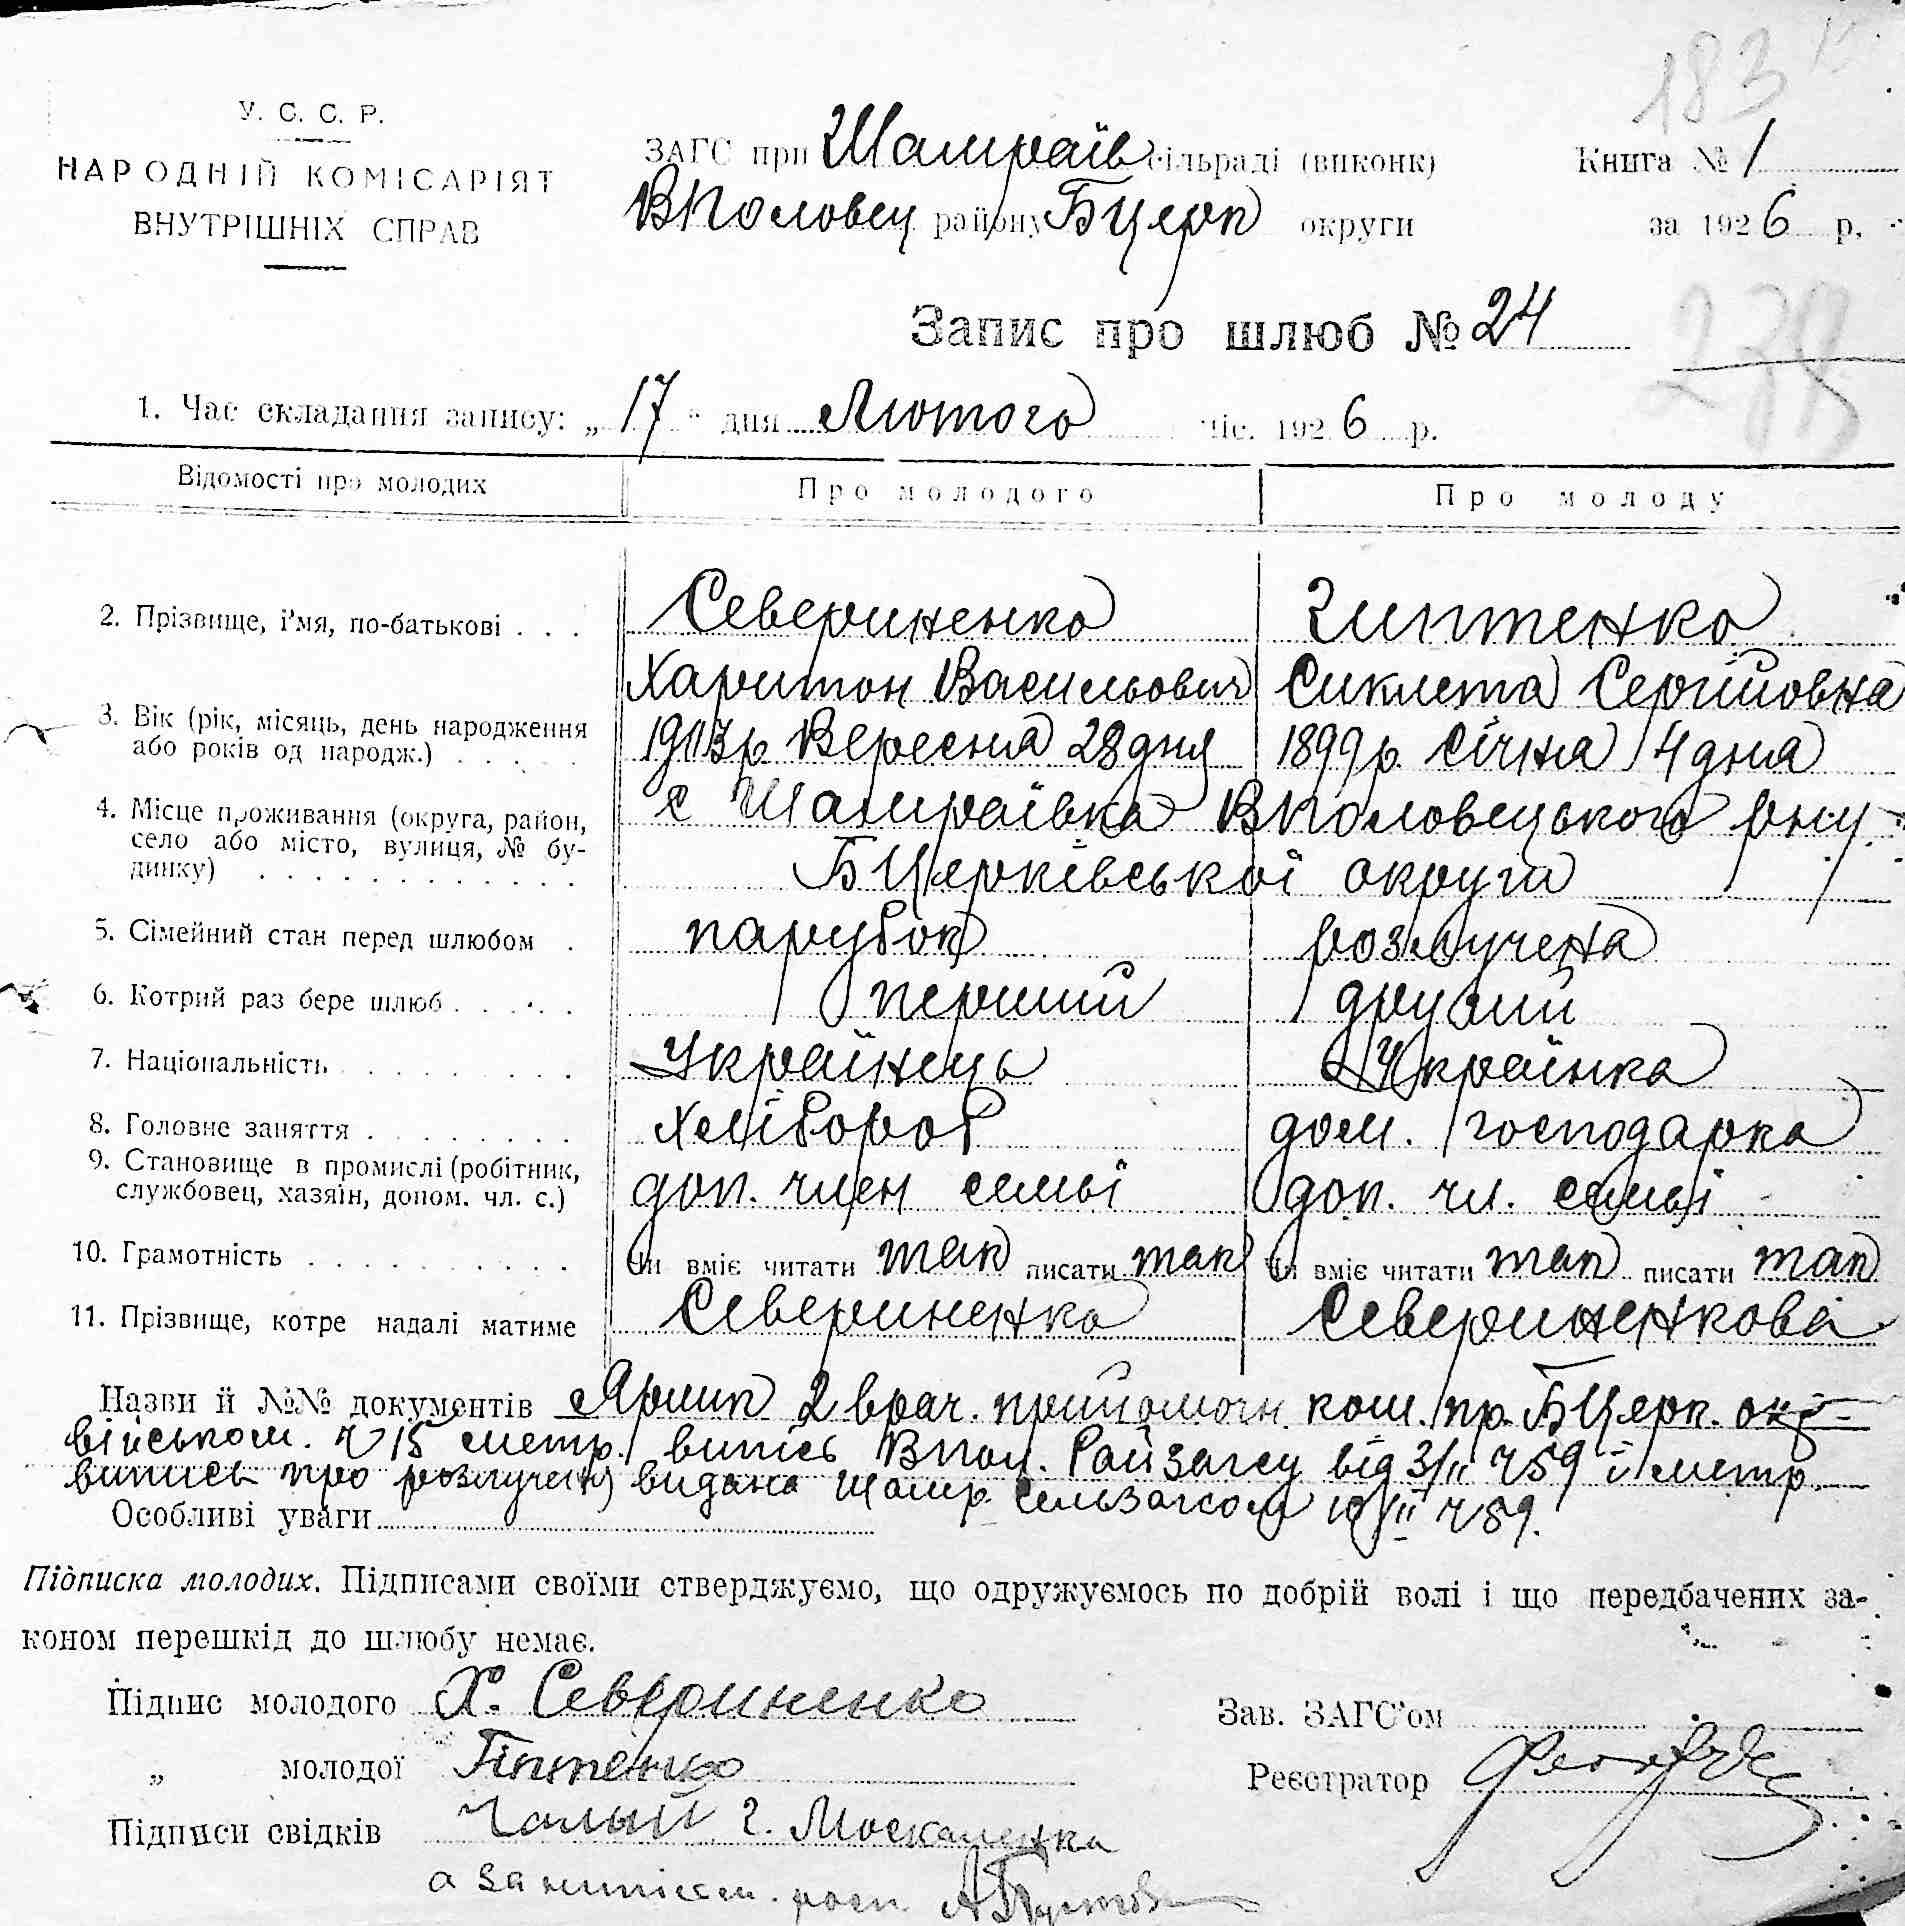 183
У. С. С. Р.
НАРОДНІЙ КОМІСАРІЯТ
ВНУТРІШНІХ СПРАВ
ЗАГС при Шамраїв сільраді (виконк)
ВПоловец району БЦерк округи
Книга № 1
за 1926 р.
Запис про шлюб № 24
238
1. Час складання запису: „17" дня Лютого міс. 1926 р.
Відомості про молодих Про молодого Про молоду
2. Прізвище, ім'я, по-батькові . . . Севериненко Гиптенко
Харитон Васильович Сиклета Сергійовна
3. Вік (рік, місяць, день народження або років од народж.) . . . . . 1903р Вересня 28 дня 1899р. Січня 4 дня
4. Місце проживання (округа, район, село або місто, вулиця, № будинку) . . . . . . . . . . . . с Шамраївка ВПоловецького рну
БЦерківської округи
5. Сімейний стан перед шлюбом . парубок розлучена
6. Котрий раз бере шлюб . . . . . перший другий
7. Національність . . . . . . . . . Українець Українка
8. Головне заняття . . . . . . . . Хлібороб дом. господарка
9. Становище в промислі (робітник, службовец, хазяїн, допом. чл. с.) доп. член семьї доп. чл. семьї
10. Грамотність . . . . . . . . . . Чи вміє читати так писати так Чи вміє читати так писати так
11. Прізвище, котре надалі матиме Севериненко Севериненкова
Назви й №№ документів Ярлик 2 врач. комі. пр. БЦерк. окр.
військом. Ч 15 метр. випісь ВПол. РайЗагсу від 3/II Ч59 й метр.
випись про розлучення видана Шамр. сельзагсом 10/II Ч 59.
Особливі уваги
Підписка молодих. Підписами своїми стверджуємо, що одружуємось по добрій волі і що передбачених за-
коном перешкід до шлюбу немає.
Підпис молодого Х. Севериненко
Зав. ЗАГС'ом
„ молодої Гіптенко
Реєстратор
Підписи свідків Чалый Г. Москаленка
а за росп.